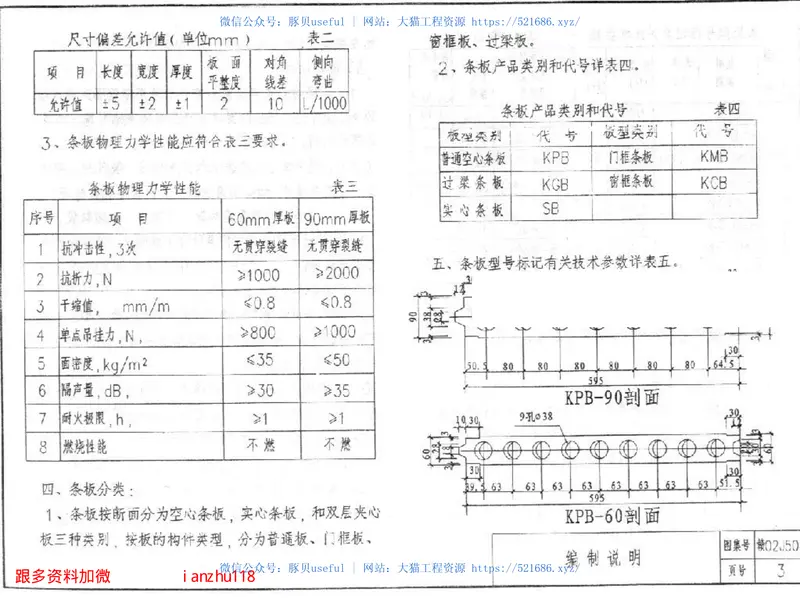 微信公众号：豚贝useful | 网站：大猫工程资源 https://521686.xyz/
尺寸偏差允许值(单位mm) 表二
项目 长度 宽度 厚度 板面平整度 对角线差 侧向弯曲
允许值 ±5 ±2 ±1 2 10 L/1000
3、条板物理力学性能应符合表三要求。
条板物理力学性能 表三
序号 项目 60mm厚板 90mm厚板
1 抗冲击性，3次 无贯穿裂缝 无贯穿裂缝
2 抗折力，N ≥1000 ≥2000
3 干缩值， mm/m ≤0.8 ≤0.8
4 单点吊挂力，N， ≥800 ≥1000
5 面密度，kg/m² ≤35 ≤50
6 隔声量，dB， ≥30 ≥35
7 耐火极限，h， ≥1 ≥1
8 燃烧性能 不燃 不燃
四、条板分类：
1、条板按断面分为空心条板，实心条板，和双层夹心
板三种类别，按板的构件类型，分为普通板、门框板、
窗框板、过梁板。
2、条板产品类别和代号详表四。
条板产品类别和代号 表四
板型类别 代号 板型类别 代号
普通空心条板 KPB 门框条板 KMB
过梁条板 KGB 窗框条板 KCB
实心条板 SB
五、条板型号标记有关技术参数详表五。
12 3
90 38 28 3
30
50.5 80 80 80 80 80 80 64.5
595
KPB-90剖面
10 30 9-孔Φ38 30
60 28 60
30 30
39.5 63 63 63 63 63 63 63 63 51.5
595
KPB-60剖面
编制说明
图集号 赣02J50
页号 3
跟多资料加微 ianzhu118
微信公众号：豚贝useful | 网站：大猫工程资源 https://521686.xyz/